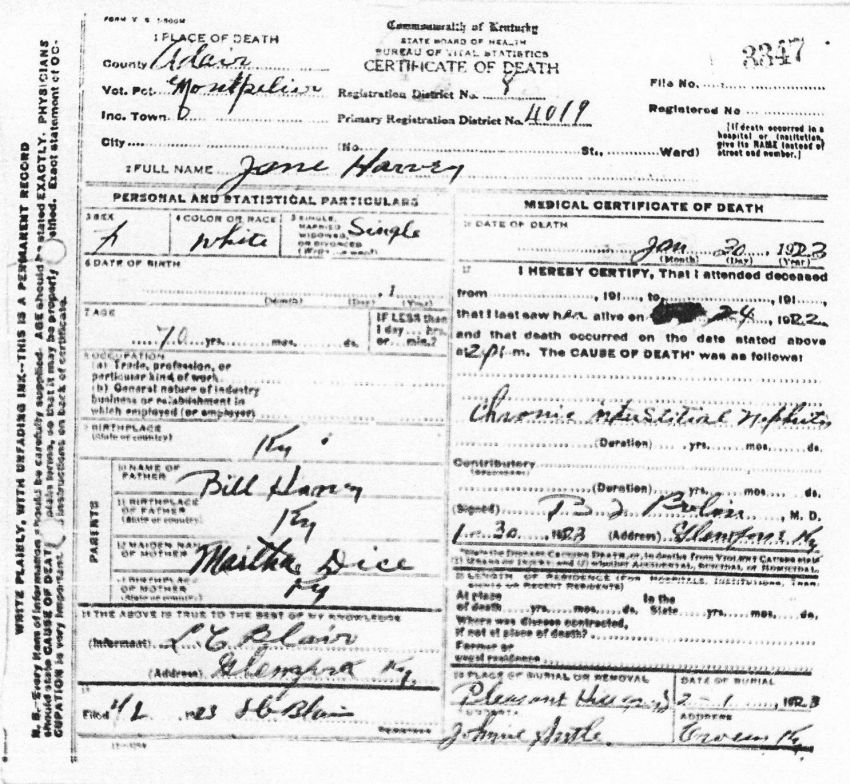 FORM V. S. 1-500M
Commonwealth of Kentucky
STATE BOARD OF HEALTH
BUREAU OF VITAL STATISTICS
CERTIFICATE OF DEATH
3347
1 PLACE OF DEATH
County Adair
Vot. Pct. Montpelier
Inc. Town
City
Registration District No. 8
Primary Registration District No. 4019
(No. St., Ward)
File No.
Registered No
[If death occurred in a
hospital or institution,
give its NAME instead of
street and number.]
2 FULL NAME Jane Harvey
PERSONAL AND STATISTICAL PARTICULARS
3 SEX
f
4 COLOR OR RACE
White
5 SINGLE,
MARRIED
WIDOWED,
OR DIVORCED
Single
6 DATE OF BIRTH
(Month) (Day) , 1 (Year)
7 AGE
70 yrs. mos. ds.
IF LESS than
1 day hrs.
or min.?
8 OCCUPATION
(a) Trade, profession, or
particular kind of work
(b) General nature of industry
business or establishment in
which employed (or employer)
9 BIRTHPLACE
(State or country)
Ky
PARENTS
10 NAME OF
FATHER
Bill Harvey
11 BIRTHPLACE
OF FATHER
(State or country)
Ky
12 MAIDEN NAME
OF MOTHER
Martha Dice
13 BIRTHPLACE
OF MOTHER
(State or country)
Ky
14 THE ABOVE IS TRUE TO THE BEST OF MY KNOWLEDGE
(Informant) L C Blair
(Address) Glenfork Ky.
15
Filed 1923 Blair
MEDICAL CERTIFICATE OF DEATH
16 DATE OF DEATH
Jan 30, 1923
(Month) (Day) (Year)
17 I HEREBY CERTIFY, That I attended deceased
from , 191 , to , 191 ,
that I last saw her alive on 24, 1922
and that death occurred on the date stated above
at 2 P. m. The CAUSE OF DEATH* was as follows:
Chronic interstitial Nephritis
(Duration) yrs. mos. ds.
Contributory
(SECONDARY)
(Duration) yrs. mos. ds.
(Signed) , M. D.
1-30, 1923 (Address) Ky
18 LENGTH OF RESIDENCE (FOR HOSPITALS, INSTITUTIONS, TRANSIENTS OR RECENT RESIDENTS)
At place In the
of death yrs. mos. ds. State yrs. mos. ds.
Where was disease contracted,
if not at place of death?
Former or
usual residence
19 PLACE OF BURIAL OR REMOVAL
Pleasant Hill
DATE OF BURIAL
2-1, 1923
ADDRESS
Ky
N. B.—Every item of information should be carefully supplied. AGE should be stated EXACTLY. PHYSICIANS
should state CAUSE OF DEATH in plain terms, so that it may be properly classified. Exact statement of OC-
CUPATION is very important. Instructions on back of certificate.
WRITE PLAINLY, WITH UNFADING INK—THIS IS A PERMANENT RECORD